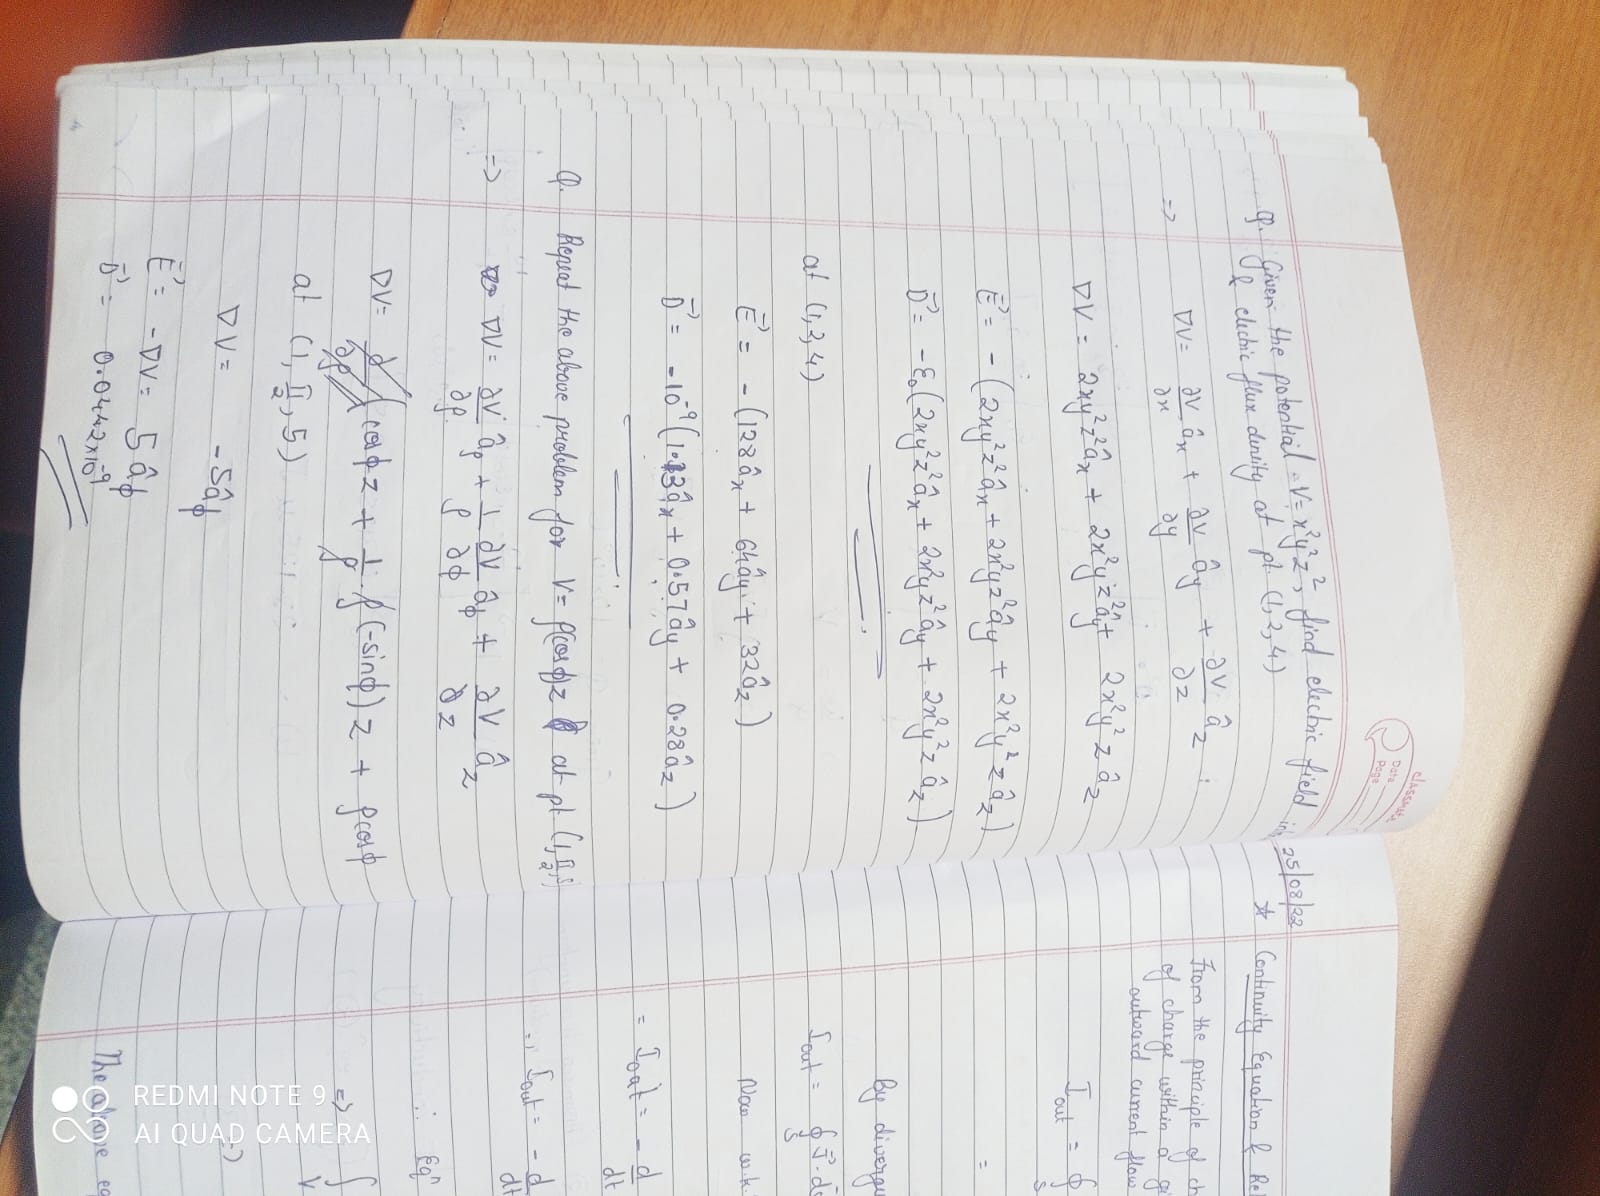 classmate
Date
Page
Q. Given the potential V = x²y²z², find electric field int
& electric flux density at pt. (1,2,4)
=> ∇V = ∂V/∂x âx + ∂V/∂y ây + ∂V/∂z âz
∇V = 2xy²z² âx + 2x²yz² ây + 2x²y²z âz
E⃗ = -(2xy²z² âx + 2x²yz² ây + 2x²y²z âz)
D⃗ = -ε₀(2xy²z² âx + 2x²yz² ây + 2x²y²z âz)
at (1,2,4)
E⃗ = -(128âx + 64ây + 32âz)
D⃗ = -10⁻⁹(1.13âx + 0.57ây + 0.28âz)
Q. Repeat the above problem for V = ρ(cosφ)z at pt. (1, π/2, 5)
=> ∇V = ∂V/∂ρ âρ + 1/ρ ∂V/∂φ âφ + ∂V/∂z âz
∇V = cosφ z + 1/ρ ρ(-sinφ)z + ρcosφ
at (1, π/2, 5)
∇V = -5âφ
E⃗ = -∇V = 5âφ
D⃗ = 0.0442×10⁻⁹
25/08/22
* Continuity Equation & Rel
From the principle of ch
of charge within a gi
outward current flow
I out = ∮
S
=
By diverge
I out = ∮ J⃗.d
S
Now w.k.
= I out = -d/dt
=> I out = -d/dt
∴ Eqⁿ
=> ∫
V
=>
The above eq
REDMI NOTE 9
AI QUAD CAMERA